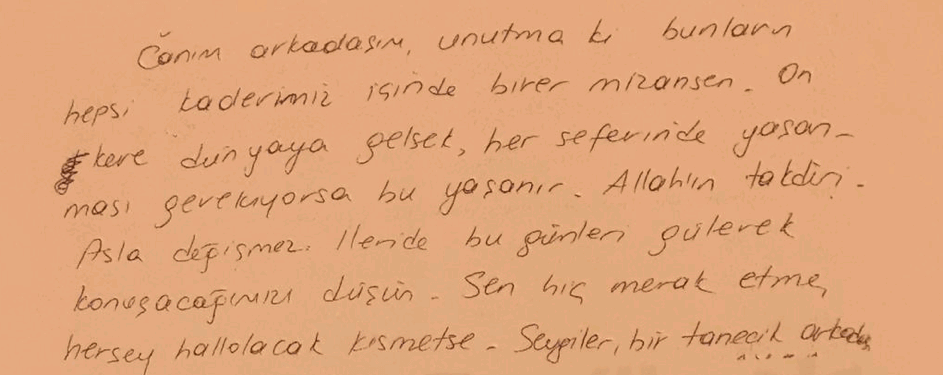 Canım arkadaşım, unutma ki bunların
hepsi kaderimiz içinde birer mizansen. On
kere dünyaya gelsek, her seferinde yaşan-
ması gerekiyorsa bu yaşanır. Allah'ın takdiri.
Asla değişmez. İleride bu günleri gülerek
konuşacağımızı düşün. Sen hiç merak etme,
herşey hallolacak kısmetse. Sevgiler, bir tanecik